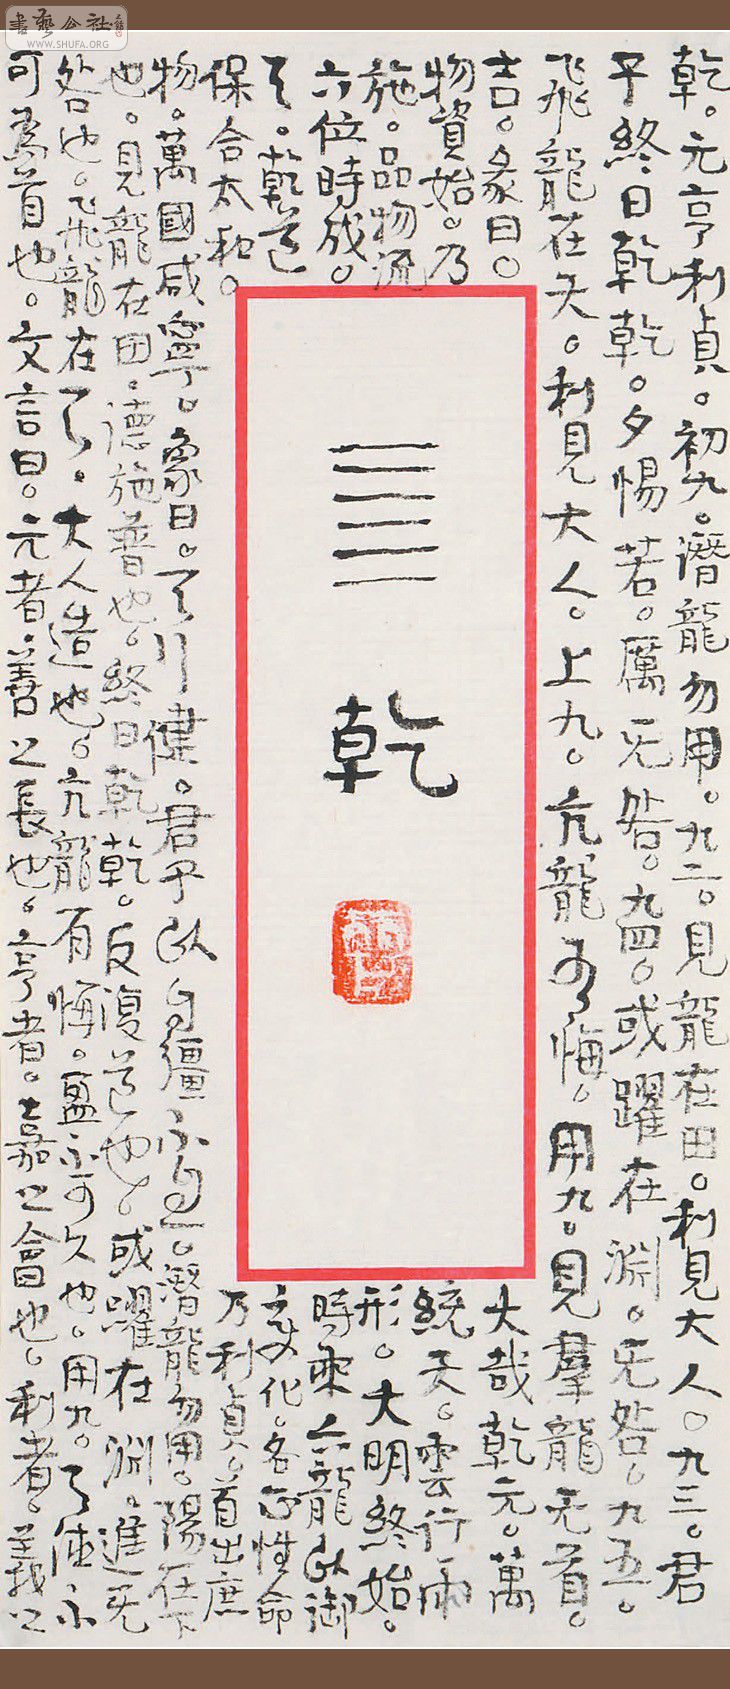 書藝公社
WWW.SHUFA.ORG
乾。元亨利貞。初九。潛龍勿用。九二。見龍在田。利見大人。九三。君
子終日乾乾。夕惕若。厲无咎。九四。或躍在淵。无咎。九五。
飛龍在天。利見大人。上九。亢龍有悔。用九。見羣龍无首。
吉。彖曰。大哉乾元。萬
物資始。乃統天。雲行雨
施。品物流形。大明終始。
六位時成。時乘六龍以御
天。乾道变化。各正性命
保合太和。乃利貞。首出庶
乾
物。萬國咸寧。象曰。天行健。君子以自彊不息。潛龍勿用。陽在下
也。見龍在田。德施普也。終日乾乾。反復道也。或躍在淵。進无
咎也。飛龍在天。大人造也。亢龍有悔。盈不可久也。用九。天德不
可為首也。文言曰。元者。善之長也。亨者。嘉之會也。利者。義之